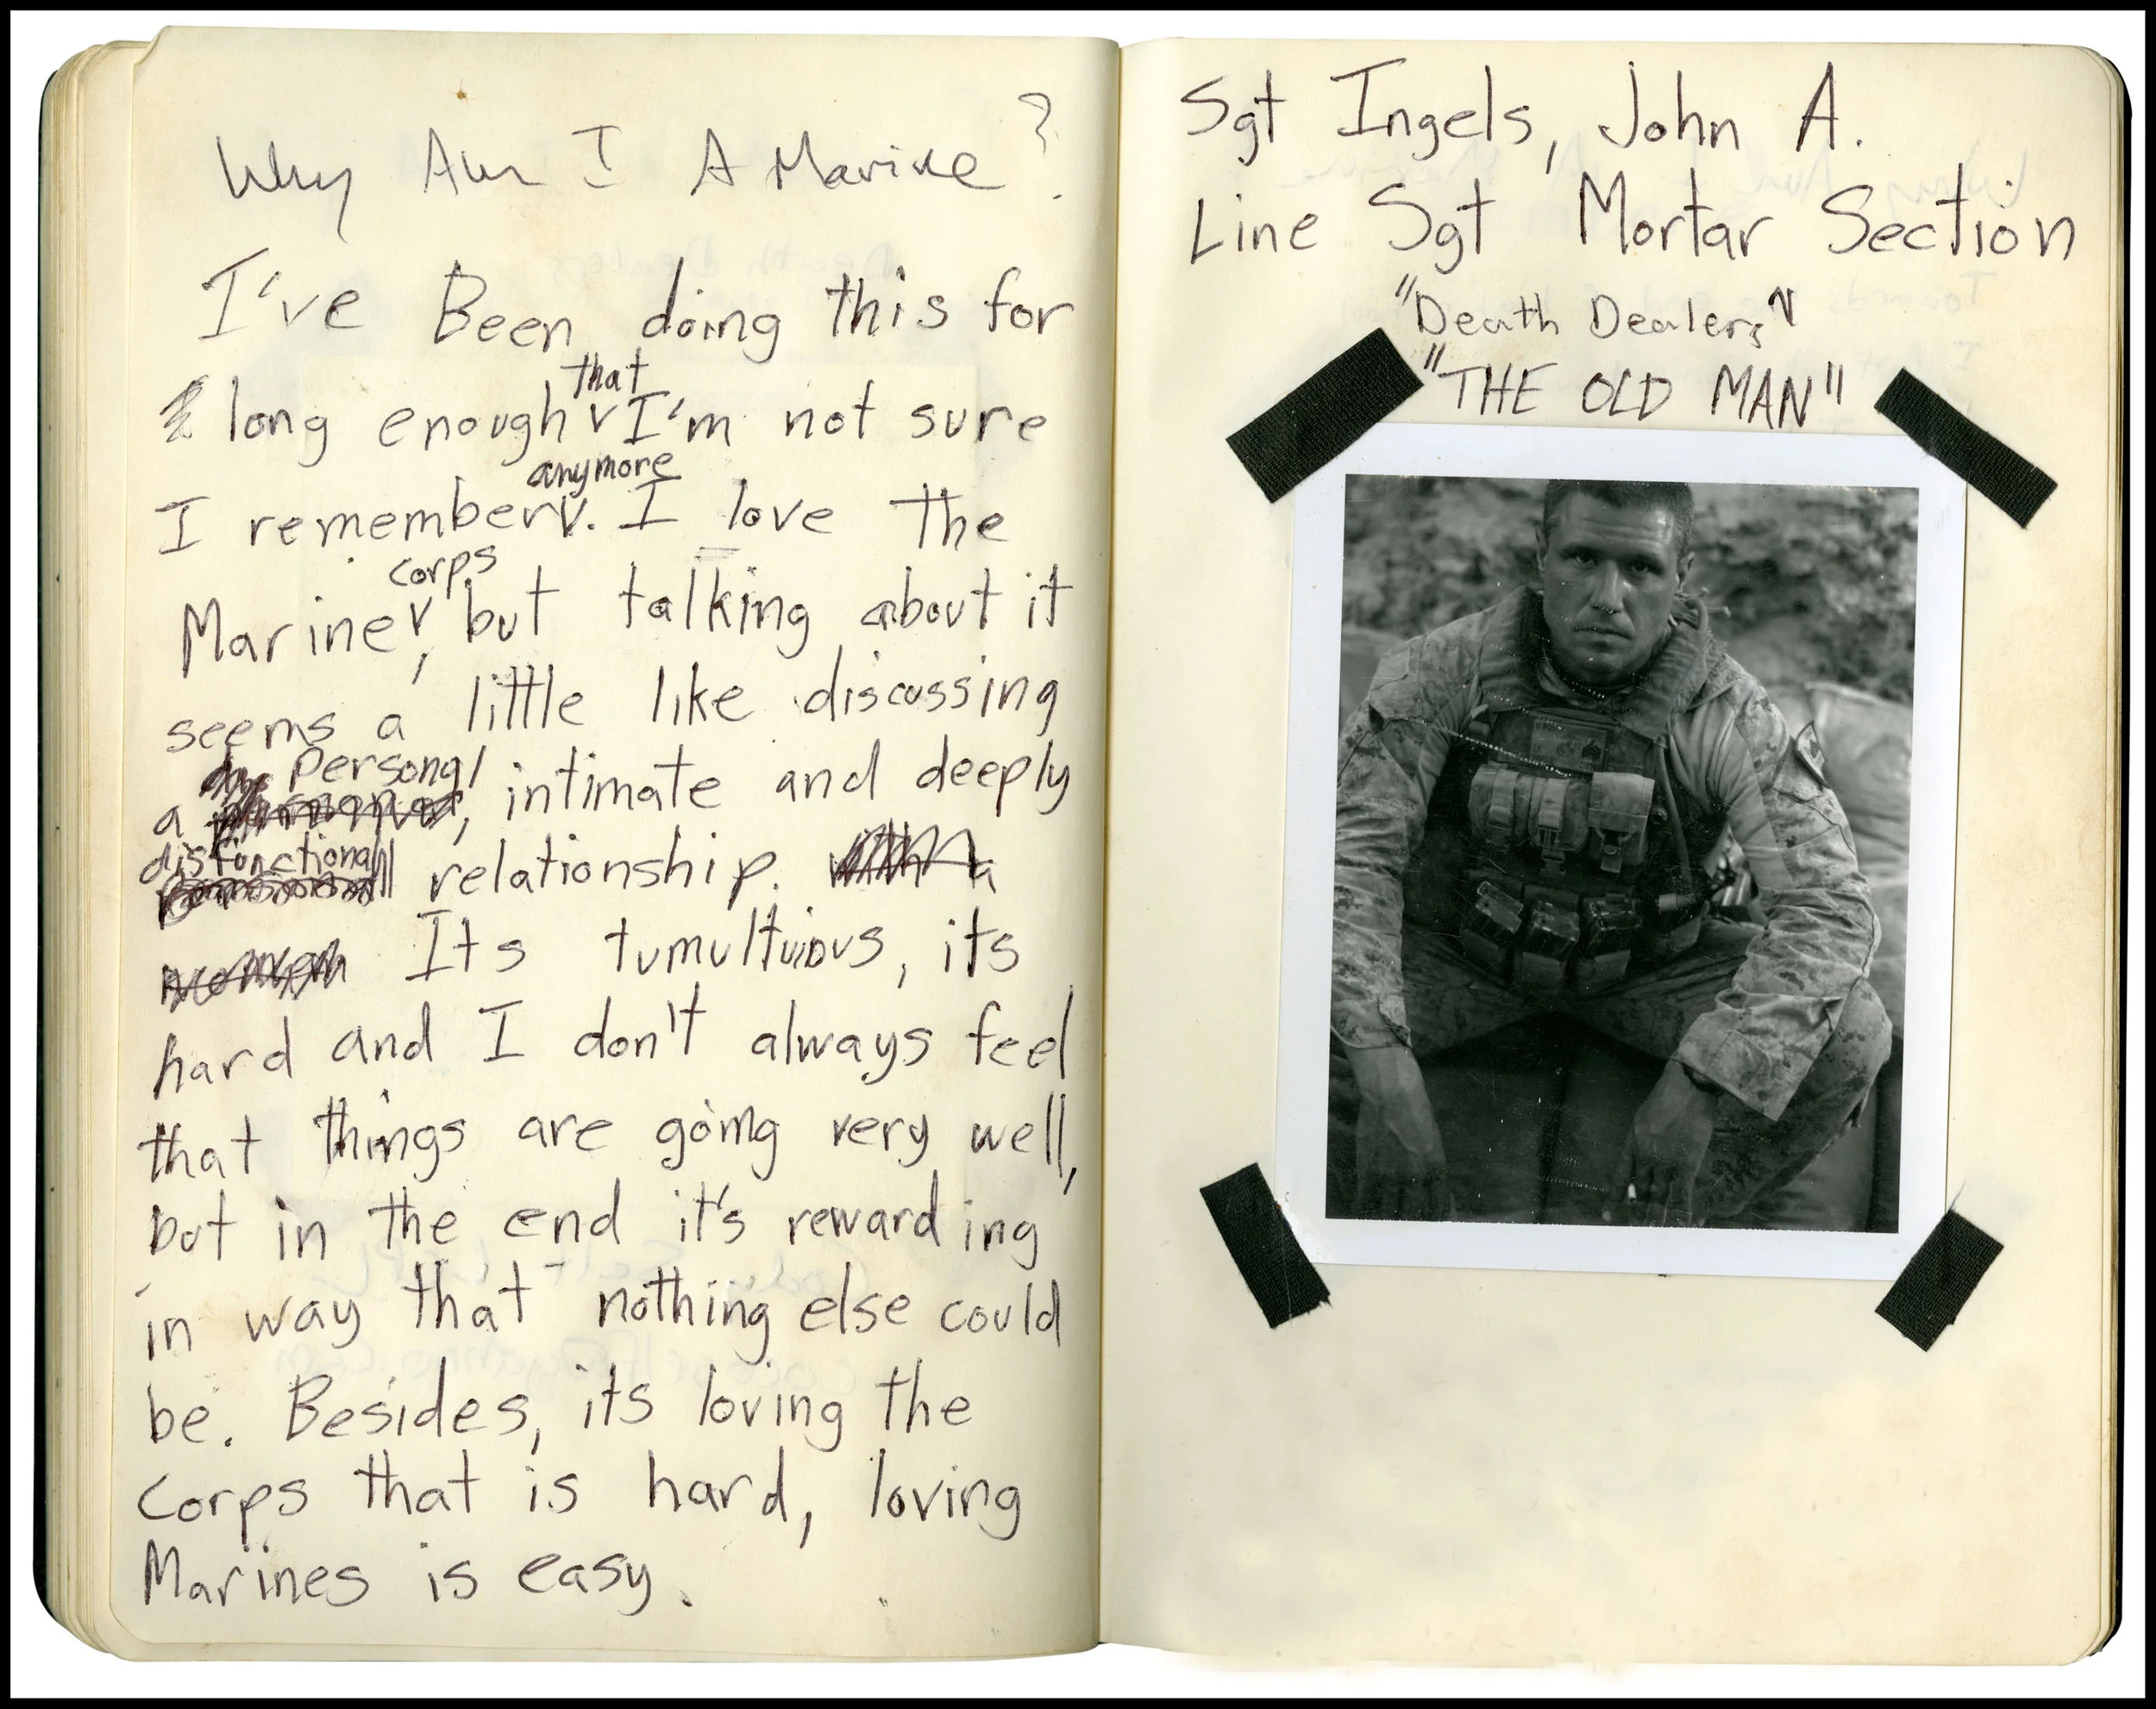 Why Am I A Marine?
I've Been doing this for
long enough that I'm not sure
I remember anymore. I love the
Marine corps, but talking about it
seems a little like discussing
a personal, intimate and deeply
disfunctional relationship.
Its tumultuious, its
hard and I don't always feel
that things are going very well,
but in the end it's rewarding
in way that nothing else could
be. Besides, its loving the
Corps that is hard, loving
Marines is easy.
Sgt Ingels, John A.
Line Sgt Mortar Section
"Death Dealers"
"THE OLD MAN"